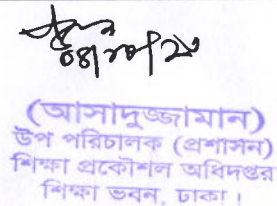 (আসাদুজ্জামান)
উপ পরিচালক (প্রশাসন)
শিক্ষা প্রকৌশল অধিদপ্তর
শিক্ষা ভবন, ঢাকা।